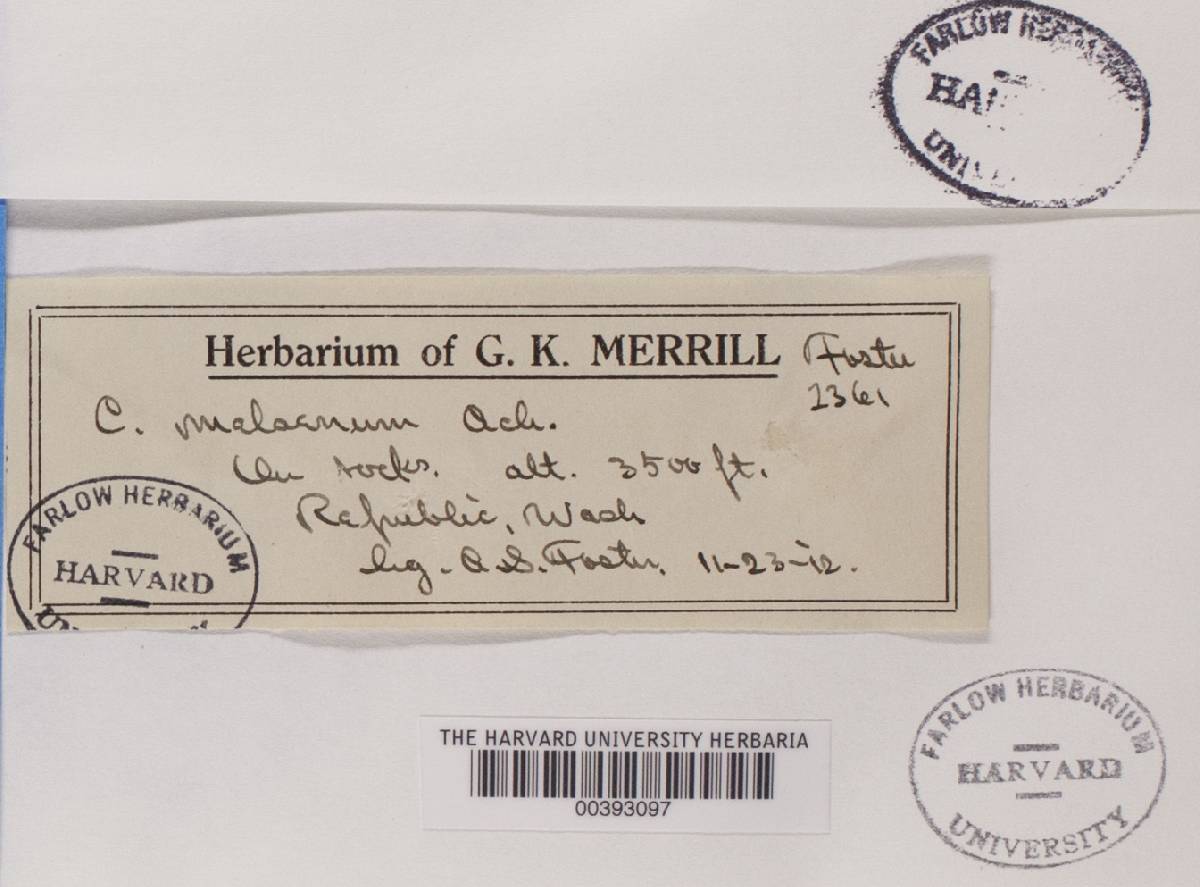 FARLOW HERBARIUM
HA
UNIVE
Herbarium of G. K. MERRILL
Foster
2361
C. melaenum Ach.
On rocks. alt. 3500 ft.
Republic, Wash
leg. A.S. Foster. 11-23-12.
FARLOW HERBARIUM
HARVARD
THE HARVARD UNIVERSITY HERBARIA
00393097
FARLOW HERBARIUM
HARVARD
UNIVERSITY